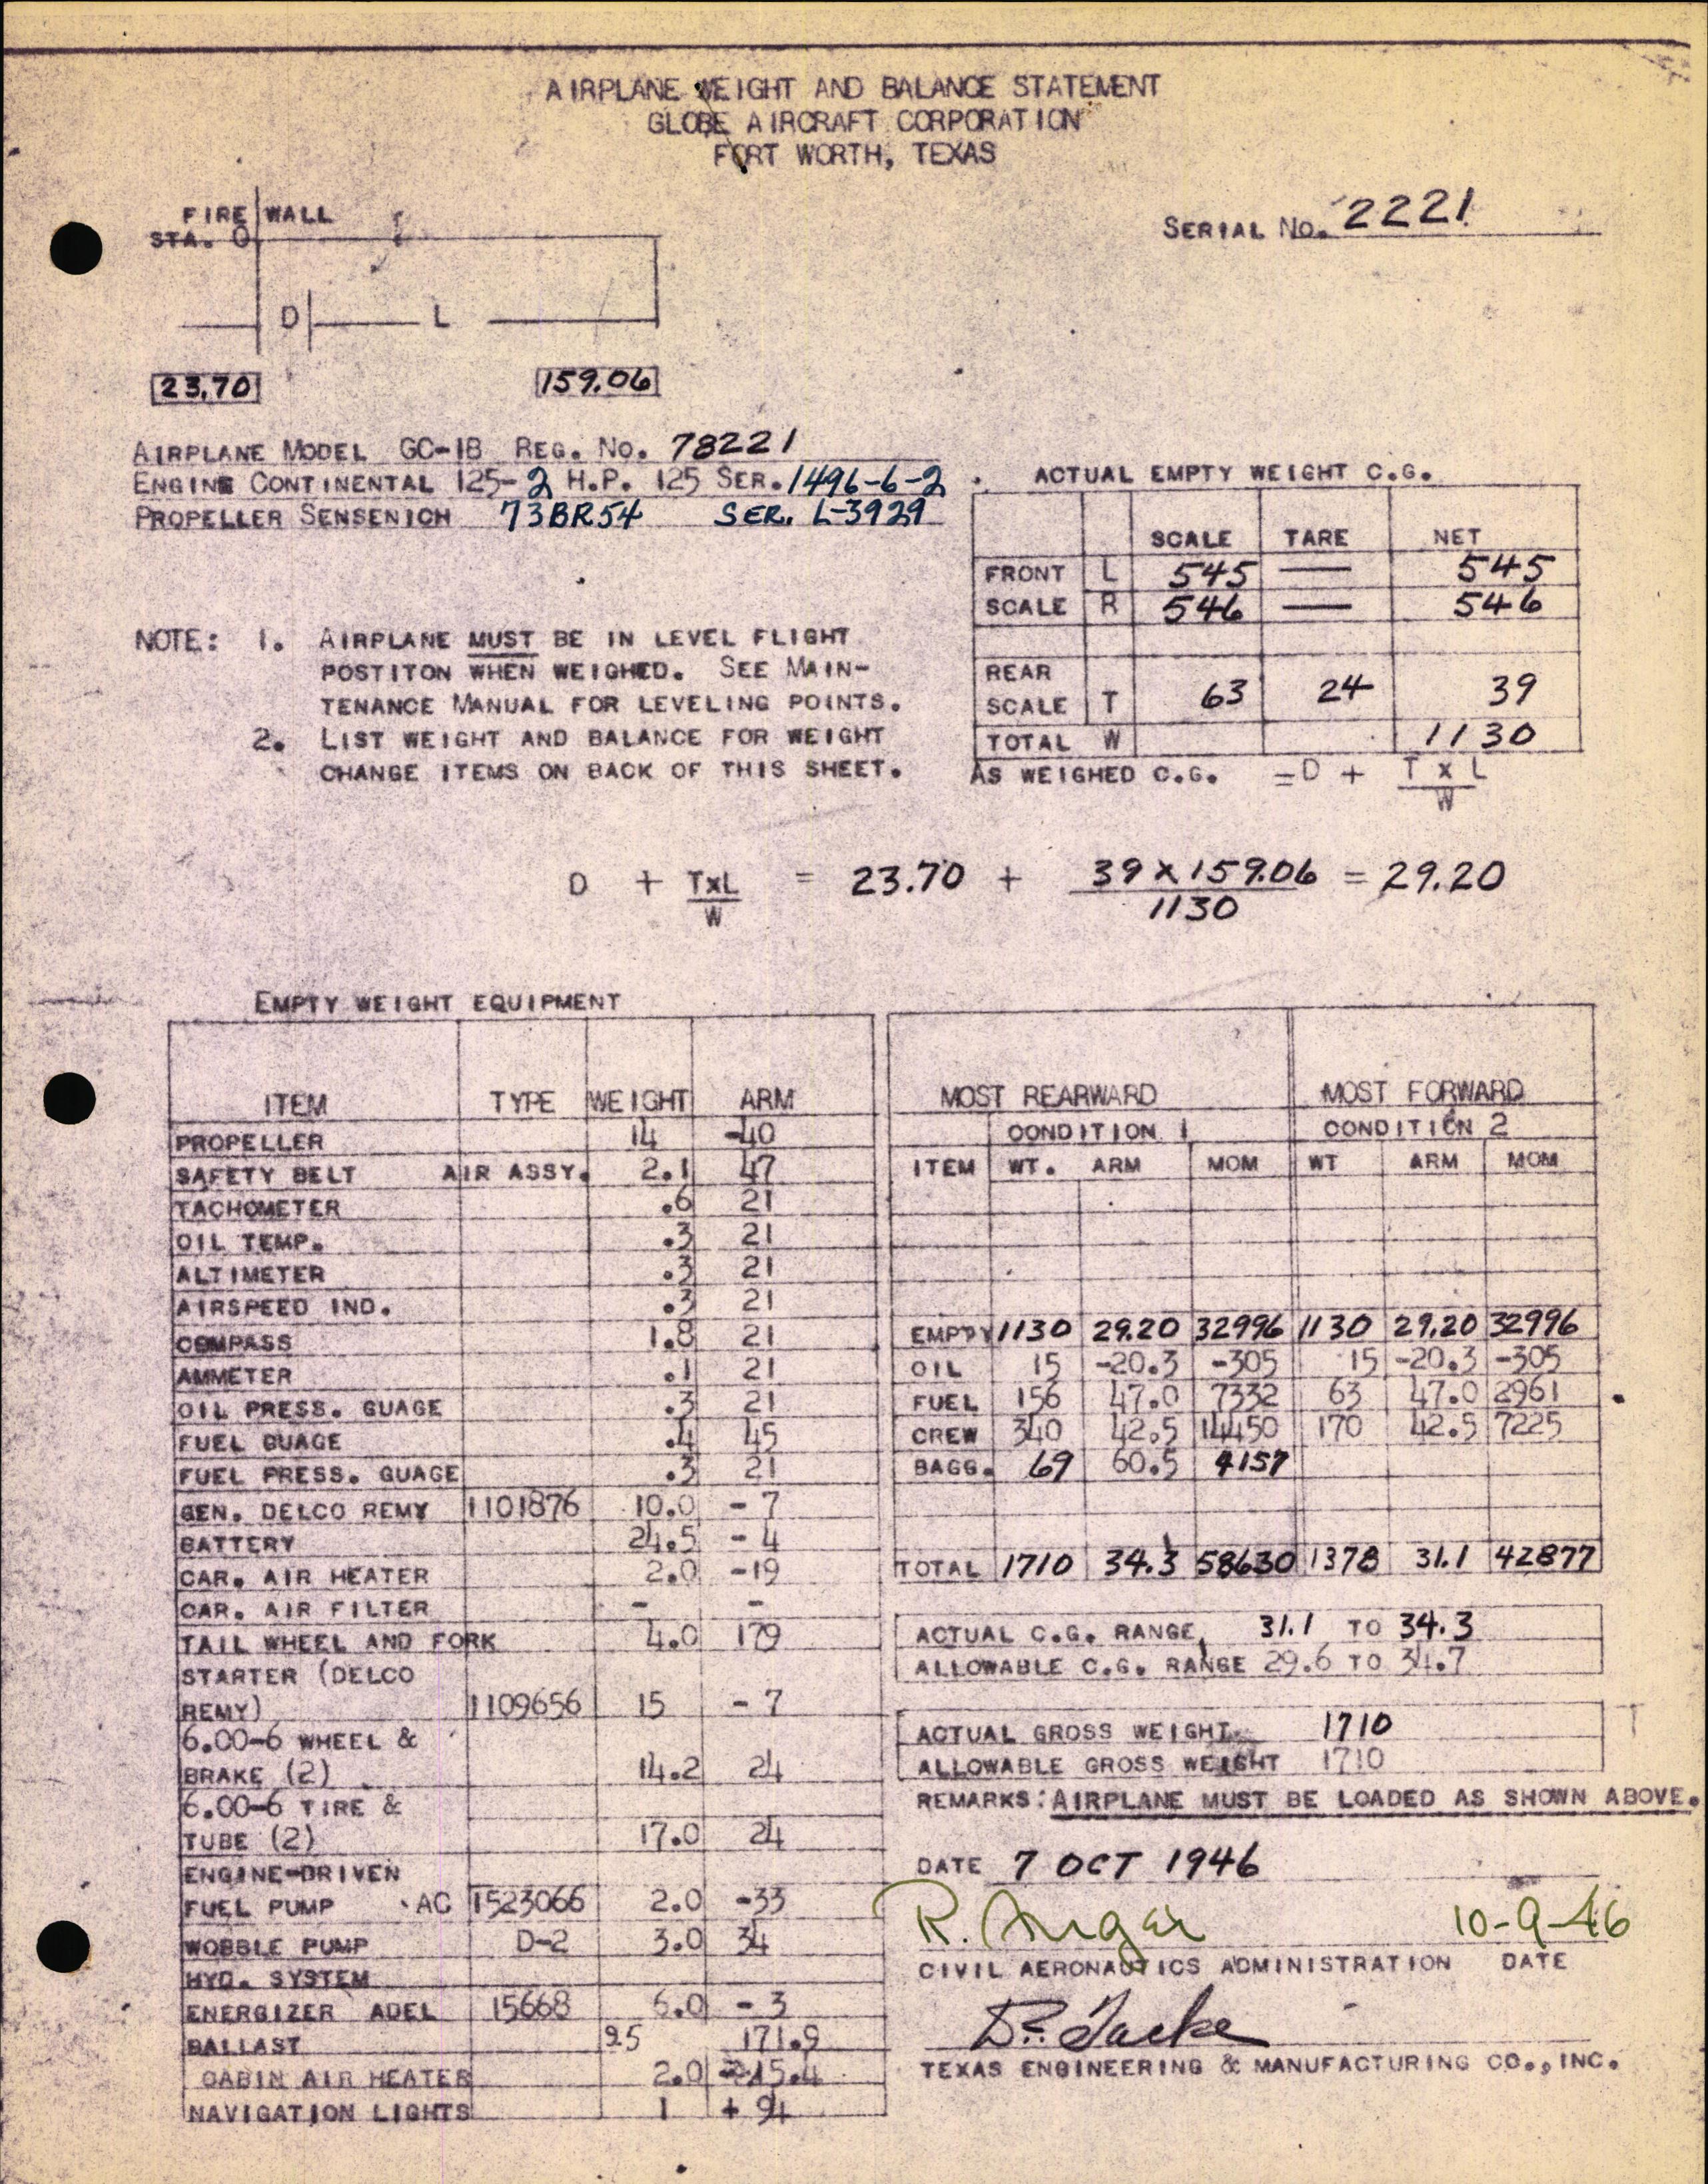 AIRPLANE WEIGHT AND BALANCE STATEMENT
GLOBE AIRCRAFT CORPORATION
FORT WORTH, TEXAS
FIRE WALL
STA. 0
SERIAL NO. 2221
D L
23.70 159.06
AIRPLANE MODEL GC-1B REG. NO. 78221
ENGINE CONTINENTAL 125-2 H.P. 125 SER. 1496-6-2
PROPELLER SENSENICH 73BR54 SER. L-3929
ACTUAL EMPTY WEIGHT C.G.
SCALE TARE NET
FRONT L 545 — 545
SCALE R 546 — 546
REAR
SCALE T 63 24 39
TOTAL W 1130
AS WEIGHED C.G. = D + T x L
W
NOTE: 1. AIRPLANE MUST BE IN LEVEL FLIGHT
POSTITON WHEN WEIGHED. SEE MAIN-
TENANCE MANUAL FOR LEVELING POINTS.
2. LIST WEIGHT AND BALANCE FOR WEIGHT
CHANGE ITEMS ON BACK OF THIS SHEET.
D + TxL = 23.70 + 39 x 159.06 = 29.20
W 1130
EMPTY WEIGHT EQUIPMENT
ITEM TYPE WEIGHT ARM
PROPELLER 14 -40
SAFETY BELT AIR ASSY. 2.1 47
TACHOMETER .6 21
OIL TEMP. .3 21
ALTIMETER .3 21
AIRSPEED IND. .3 21
COMPASS 1.8 21
AMMETER .1 21
OIL PRESS. GUAGE .3 21
FUEL GUAGE .4 45
FUEL PRESS. GUAGE .3 21
GEN. DELCO REMY 1101876 10.0 - 7
BATTERY 24.5 - 4
CAR. AIR HEATER 2.0 -19
CAR. AIR FILTER - -
TAIL WHEEL AND FORK 4.0 179
STARTER (DELCO
REMY) 1109656 15 - 7
6.00-6 WHEEL &
BRAKE (2) 14.2 24
6.00-6 TIRE &
TUBE (2) 17.0 24
ENGINE-DRIVEN
FUEL PUMP AC 1523066 2.0 -33
WOBBLE PUMP D-2 3.0 34
HYD. SYSTEM
ENERGIZER ADEL 15668 6.0 - 3
BALLAST 25 171.9
CABIN AIR HEATER 2.0
NAVIGATION LIGHTS 1 + 94
MOST REARWARD MOST FORWARD
CONDITION 1 CONDITION 2
ITEM WT. ARM MOM WT ARM MOM
EMPTY 1130 29.20 32996 1130 29.20 32996
OIL 15 -20.3 -305 15 -20.3 -305
FUEL 156 47.0 7332 63 47.0 2961
CREW 340 42.5 14450 170 42.5 7225
BAGG. 69 60.5 4157
TOTAL 1710 34.3 58630 1378 31.1 42877
ACTUAL C.G. RANGE 31.1 TO 34.3
ALLOWABLE C.G. RANGE 29.6 TO 34.7
ACTUAL GROSS WEIGHT 1710
ALLOWABLE GROSS WEIGHT 1710
REMARKS: AIRPLANE MUST BE LOADED AS SHOWN ABOVE.
DATE 7 OCT 1946
R. 10-9-46
CIVIL AERONAUTICS ADMINISTRATION DATE
TEXAS ENGINEERING & MANUFACTURING CO., INC.